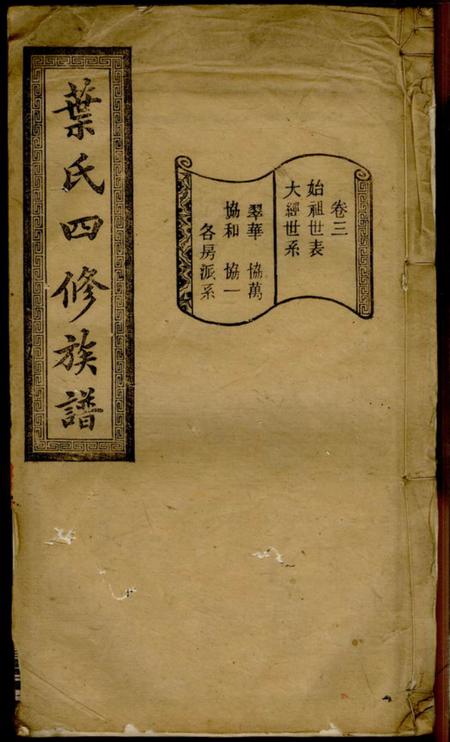 葉氏四修族譜
卷三
始祖世表
大經世系
翠華 協萬
協和 協一
各房派系